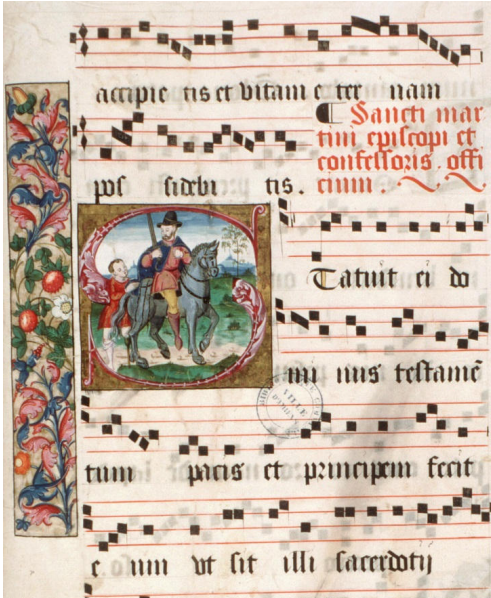 accipie tis et vitam e ter nam
¶ Sancti mar
tini episcopi et
confessoris . offi
cium .
pos sidebi tis .
Tatuit ei do
mi nus testamē
tum pacis et principem fecit
e um vt sit illi sacerdotij
VILLE